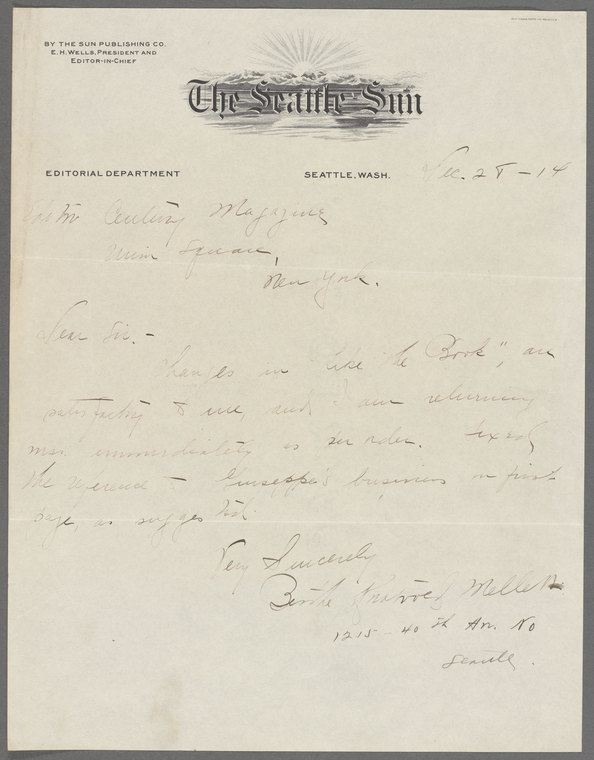 BY THE SUN PUBLISHING CO.
E. H. WELLS, PRESIDENT AND
EDITOR-IN-CHIEF
The Seattle Sun
EDITORIAL DEPARTMENT SEATTLE, WASH. Dec. 28 - 14
Editor Century Magazine
Union Square,
New York.
Dear Sir. -
Changes in "Like the Book", are
satisfactory to me, and I am returning
mss. immediately as per order. Fixed
the reference to Giuseppe's business on first
page, as suggested.
Very Sincerely
Mellett
1215 - 40th Av. No
Seattle.